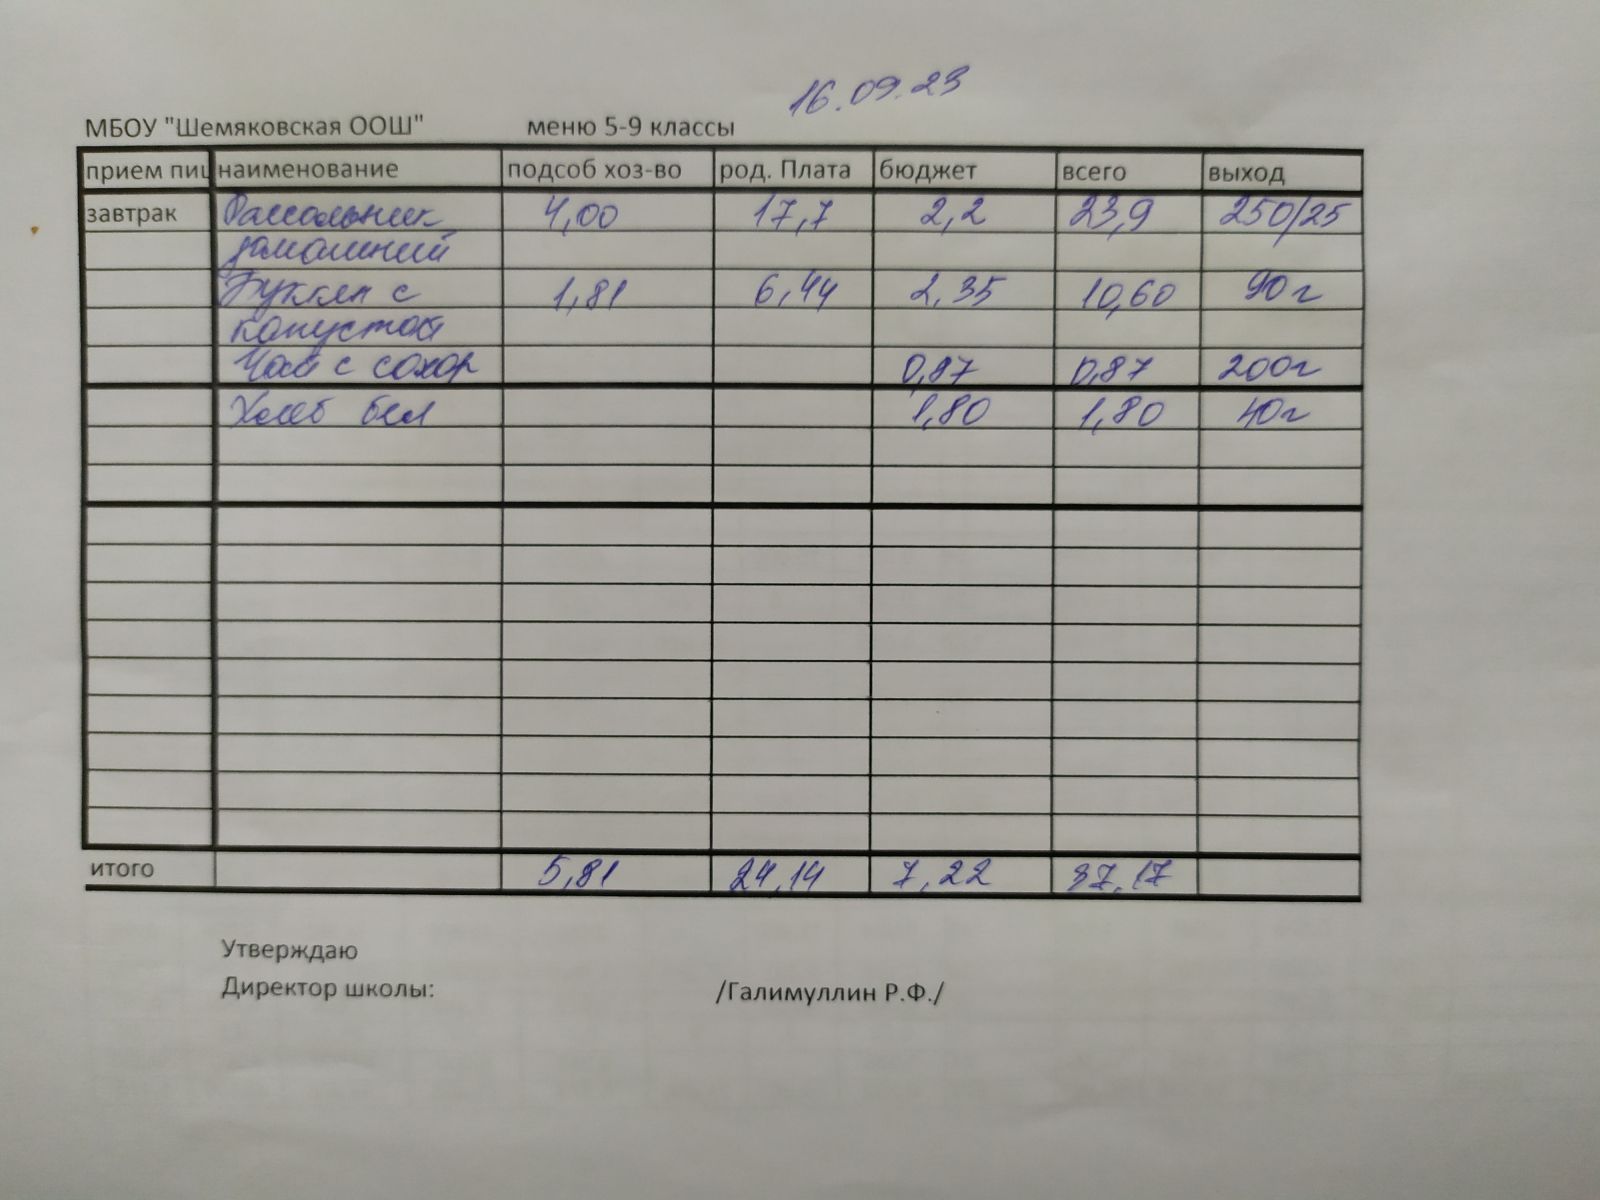 16.09.23
МБОУ "Шемяковская ООШ" меню 5-9 классы
прием пищ наименование подсоб хоз-во род. Плата бюджет всего выход
завтрак Рассольник 4,00 17,7 2,2 23,9 250/25
домашний
Буккен с 1,81 6,44 2,35 10,60 90г
капустой
Чай с сахор 0,87 0,87 200г
Хлеб бел 1,80 1,80 40г
итого 5,81 24,14 7,22 37,17
Утверждаю
Директор школы: /Галимуллин Р.Ф./